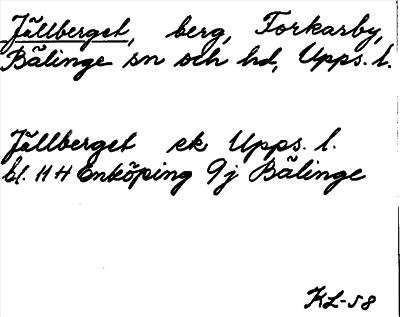 Jällberget, berg, Torkarby,
Bälinge sn och hd, Upps. l.
Jällberget ek Upps. l.
bl. 11 H Enköping 9j Bälinge
KL-58